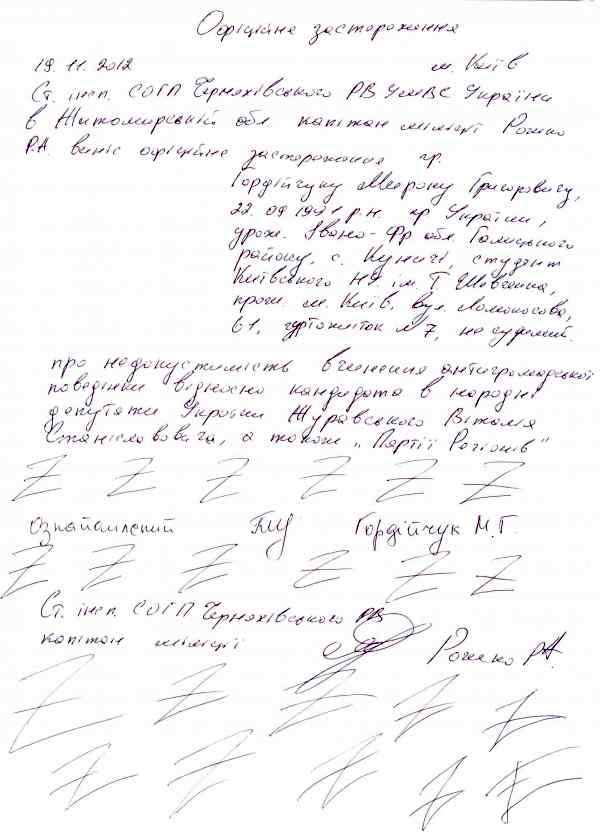 Офіційне застереження
19.11.2012 м. Київ
Ст. інсп. СОГП Черняхівського РВ УМВС України
в Житомирській обл капітан міліції Рожко
Р.А. виніс офіційне застереження гр.
Гордійчуку Мирону Григоровичу,
22.09.1991 р.н. гр України,
урож. Івано-Фр обл. Галицького
району, с. Куничі, студент
Київського НУ ім. Т. Шевченка,
прож м. Київ, вул. Ломоносова,
61, гуртожиток №7, не судимий.
про недопустимість вчинення антигромадської
поведінки відносно кандидата в народні
депутати України Журавського Віталія
Станіславовича, а також „Партії Регіонів"
Ознайомлений Гордійчук М.Г.
Ст. інсп. СОГП Черняхівського РВ
капітан міліції Рожко Р.А.